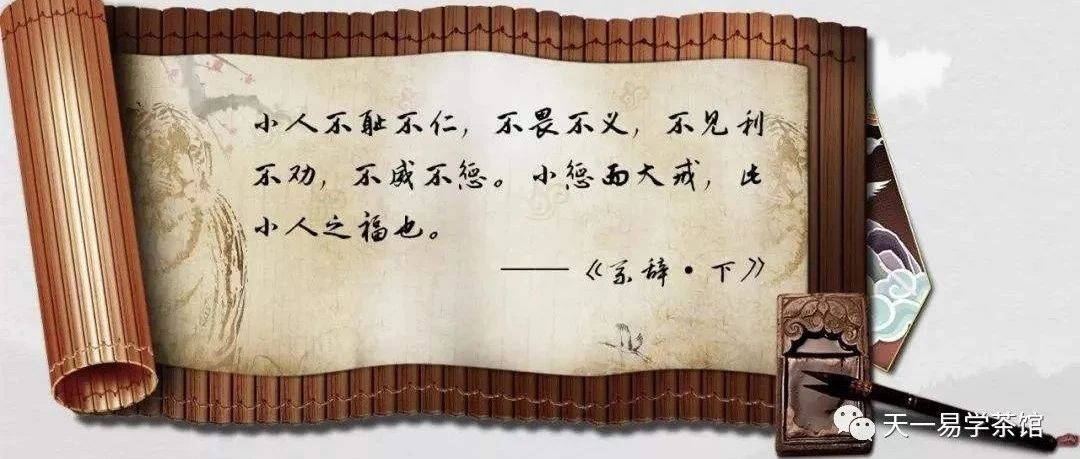 小人不耻不仁，不畏不义，不见利
不劝，不威不惩。小惩而大戒，此
小人之福也。
——《系辞·下》
天一易学茶馆